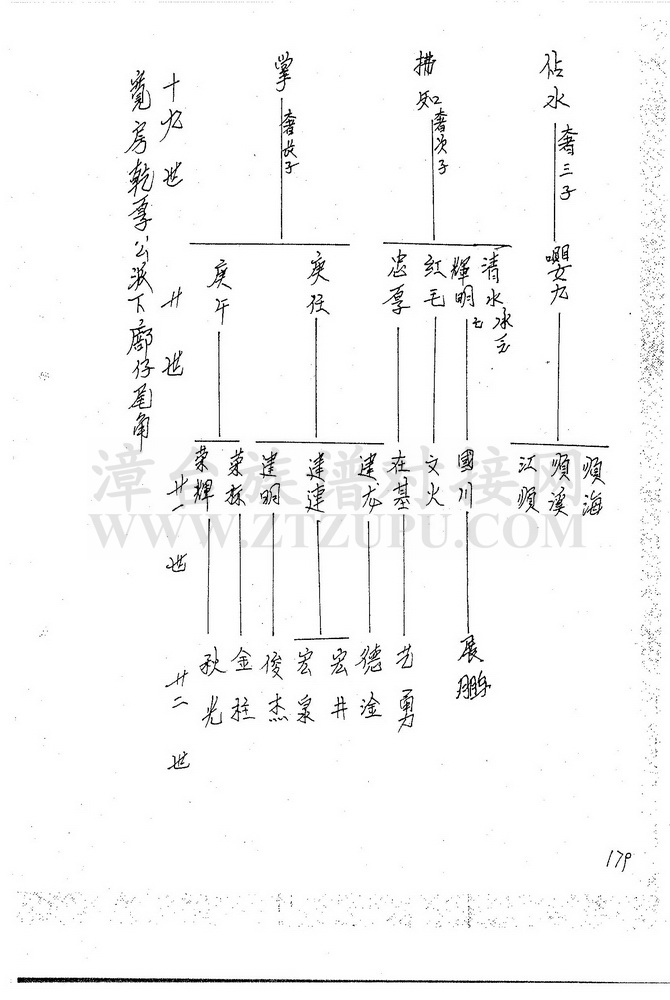 寬房乾厚公派下廊仔尾角
十九世
廿世
廿一世
廿二世
掌
奢長子
拂知
奢次子
佔水
奢三子
庚午
庚任
忠厚
紅毛
輝明
清水
嬰九
荣輝
荣森
建明
建連
建龙
在基
文火
國川
江順
順溪
順海
秋光
金柱
俊杰
宏泉
宏井
德淦
艺勇
展鵬
漳台族譜对接网
WWW.ZTZUPU.COM
179